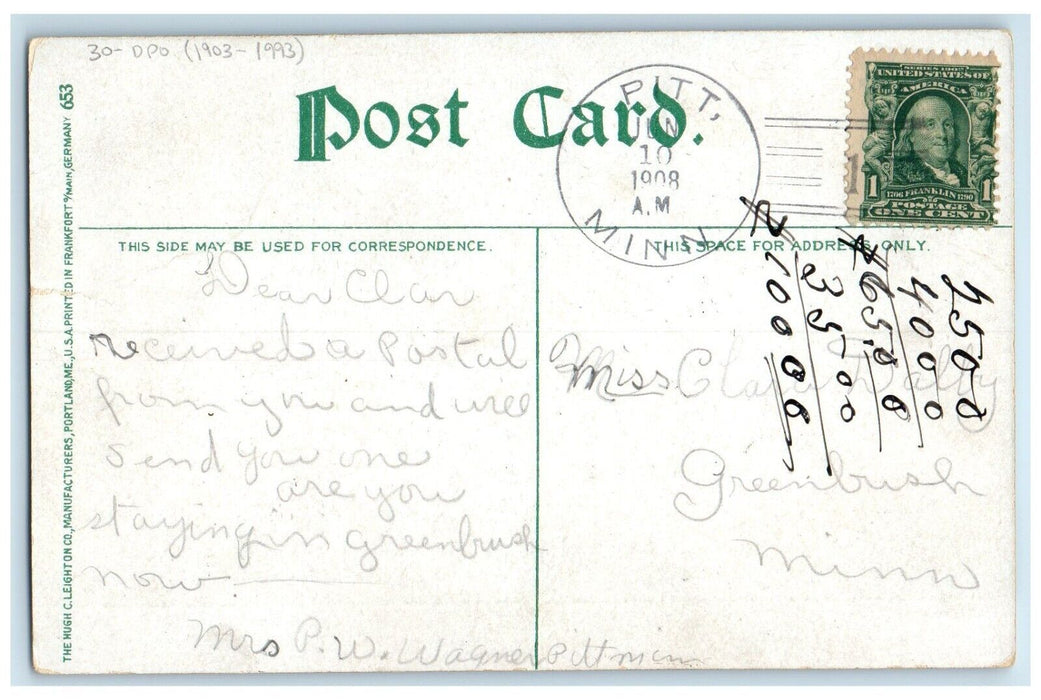 30- DPO (1903-1993)
Post Card.
PITT,
JUN
10
1908
A.M
MINN
SERIES 1902
UNITED STATES OF
AMERICA
1 1
1706 FRANKLIN 1790
POSTAGE
ONE CENT
THE HUGH C. LEIGHTON CO., MANUFACTURERS, PORTLAND, ME., U.S.A. PRINTED IN FRANKFORT o/MAIN, GERMANY 653
THIS SIDE MAY BE USED FOR CORRESPONDENCE.
Dear Clar
received a Postal
from you and will
Send you one
are you
staying in greenbrush
now
Mrs P. W. Wagner Pitt minn
THIS SPACE FOR ADDRESS ONLY.
Miss Clara Dalby
Greenbush
Minn
2500
4000
$65,00
3500
$100.00